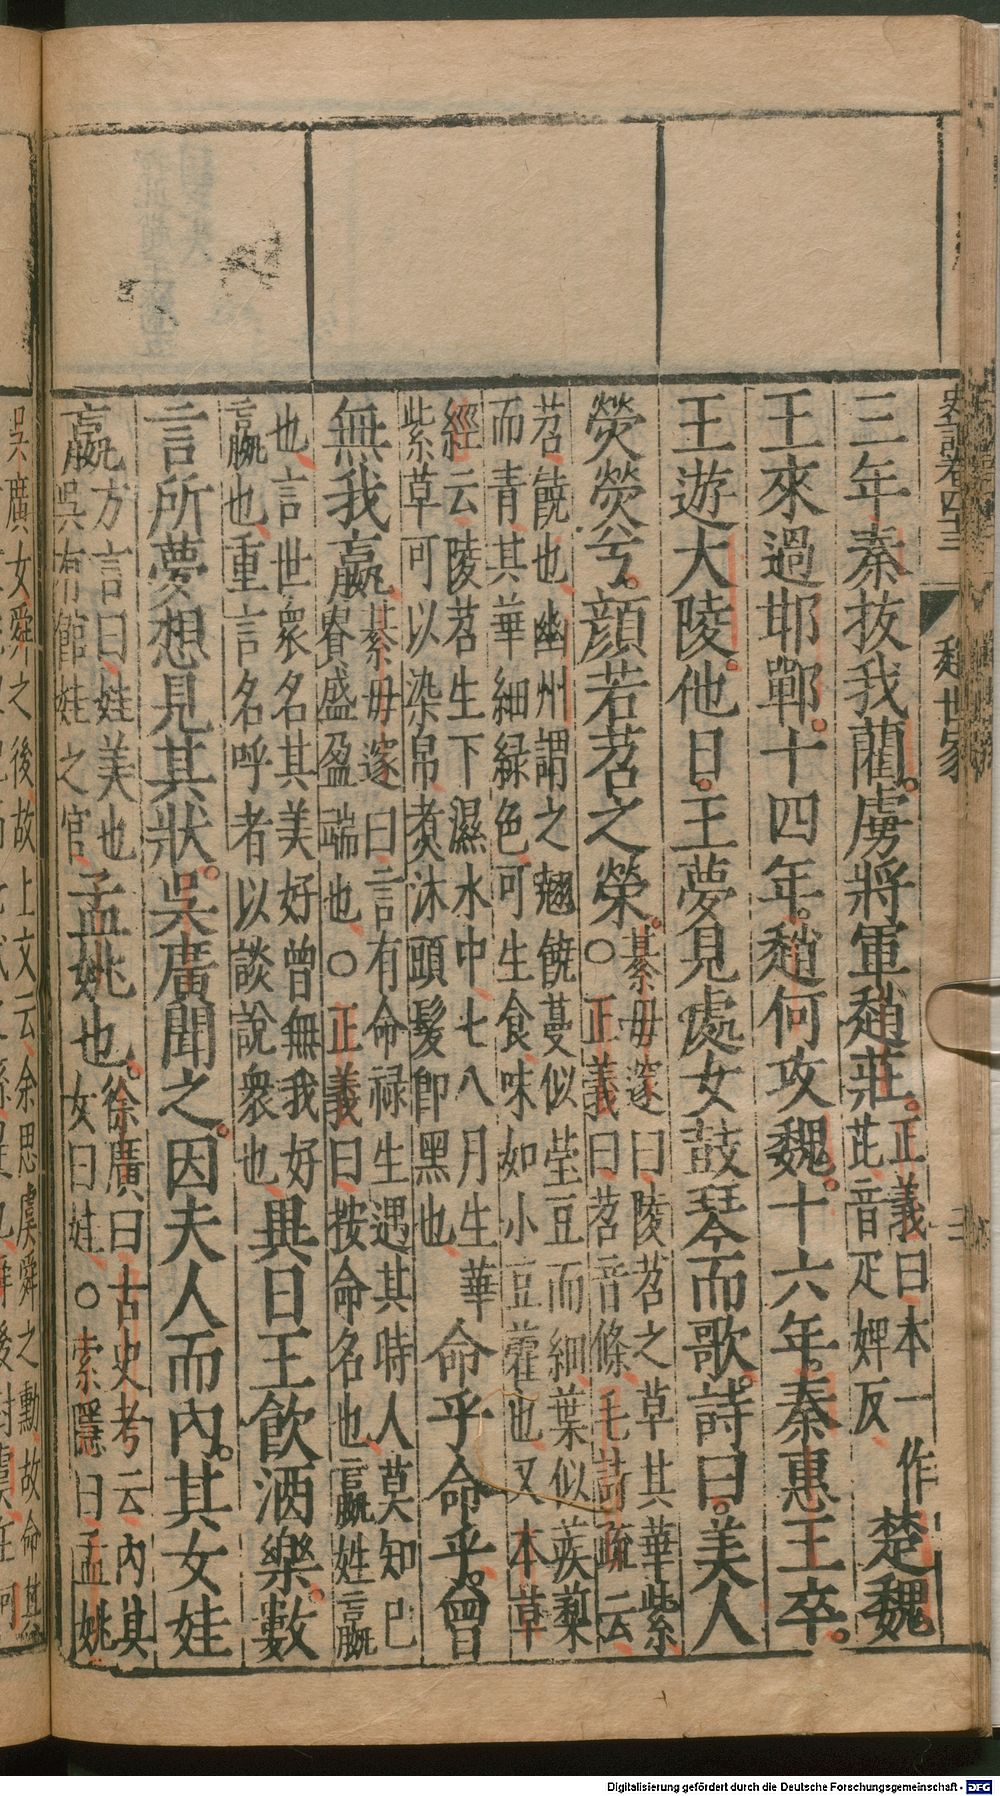 史記卷四十三
趙世家
三年秦拔我藺虜將軍趙莊正義曰本一作茈音疋婢反楚魏
王來過邯鄲十四年趙何攻魏十六年秦惠王卒
王遊大陵他日王夢見處女鼓琴而歌詩曰美人
熒熒兮顔若苕之榮綦毋邃曰陵苕之草其華紫○正義曰苕音條毛詩疏云
苕饒也幽州謂之翹饒蔓似䝁豆而細葉似蒺蔾
而青其華細緑色可生食味如小豆藿也又本草
經云陵苕生下濕水中七八月生華
紫草可以染帛煑沐頭髮即黑也命乎命乎曾
無我嬴綦毋邃曰言有命禄生遇其時人莫知已
貴盛盈端也○正義曰按命名也嬴姓言嬴
也言世衆名其美好曾無我好
言嬴也重言名呼者以談說衆也異日王飲酒樂數
言所夢想見其狀吳廣聞之因夫人而內其女娃
嬴方言曰娃美也吳有館娃之宮孟姚也徐廣曰古史考云內其女曰娃○索隱曰孟姚
吳廣女舜之後故上文云余思虞舜之勳故命其
Digitalisierung gefördert durch die Deutsche Forschungsgemeinschaft - DFG